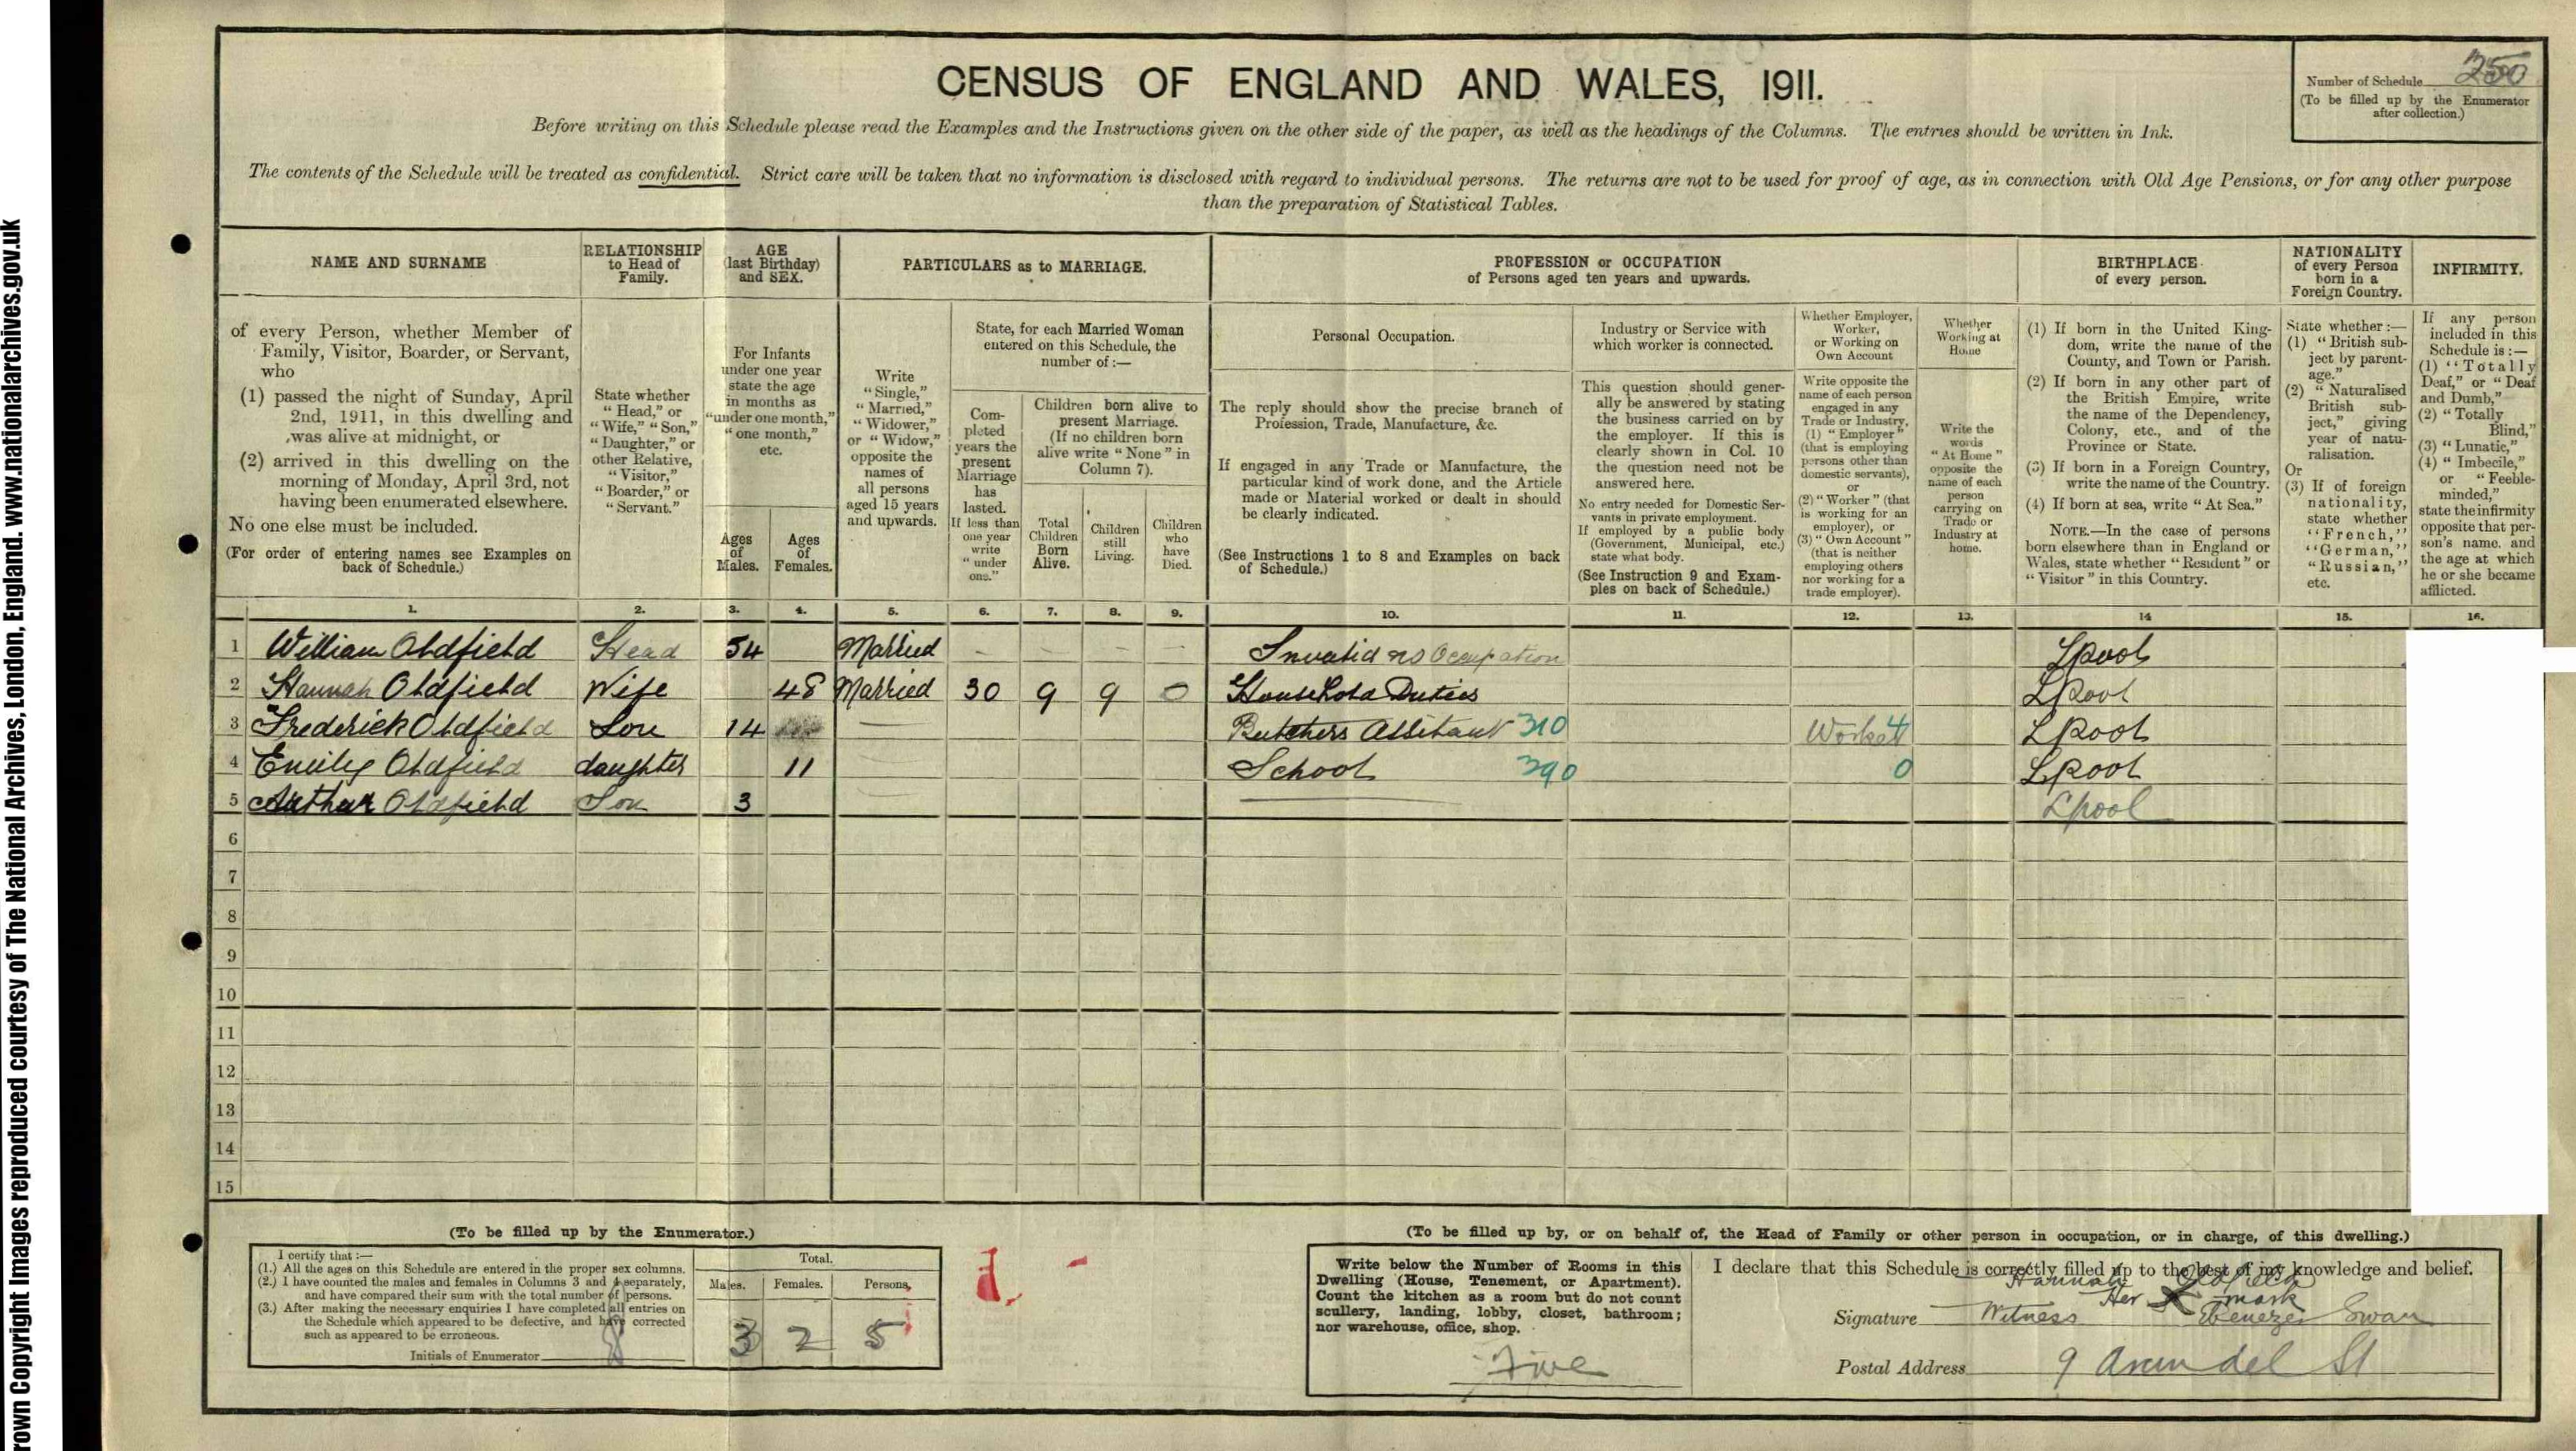 rown Copyright Images reproduced courtesy of The National Archives, London, England. www.nationalarchives.gov.uk
CENSUS OF ENGLAND AND WALES, 1911.
Number of Schedule 250
(To be filled up by the Enumerator
after collection.)
Before writing on this Schedule please read the Examples and the Instructions given on the other side of the paper, as well as the headings of the Columns. The entries should be written in Ink.
The contents of the Schedule will be treated as confidential. Strict care will be taken that no information is disclosed with regard to individual persons. The returns are not to be used for proof of age, as in connection with Old Age Pensions, or for any other purpose
than the preparation of Statistical Tables.
NAME AND SURNAME
of every Person, whether Member of
Family, Visitor, Boarder, or Servant,
who
(1) passed the night of Sunday, April
2nd, 1911, in this dwelling and
was alive at midnight, or
(2) arrived in this dwelling on the
morning of Monday, April 3rd, not
having been enumerated elsewhere.
No one else must be included.
(For order of entering names see Examples on
back of Schedule.)
RELATIONSHIP
to Head of
Family.
State whether
"Head," or
"Wife," "Son,"
"Daughter," or
other Relative,
"Visitor,"
"Boarder," or
"Servant."
AGE
(last Birthday)
and SEX.
For Infants
under one year
state the age
in months as
"under one month,"
"one month,"
etc.
Ages
of
Males.
Ages
of
Females.
PARTICULARS as to MARRIAGE.
Write
"Single,"
"Married,"
"Widower,"
or "Widow,"
opposite the
names of
all persons
aged 15 years
and upwards.
State, for each Married Woman
entered on this Schedule, the
number of:—
Com-
pleted
years the
present
Marriage
has
lasted.
If less than
one year
write
"under
one."
Children born alive to
present Marriage.
(If no children born
alive write "None" in
Column 7).
Total
Children
Born
Alive.
Children
still
Living.
Children
who
have
Died.
PROFESSION or OCCUPATION
of Persons aged ten years and upwards.
Personal Occupation.
The reply should show the precise branch of
Profession, Trade, Manufacture, &c.
If engaged in any Trade or Manufacture, the
particular kind of work done, and the Article
made or Material worked or dealt in should
be clearly indicated.
(See Instructions 1 to 8 and Examples on back
of Schedule.)
Industry or Service with
which worker is connected.
This question should gener-
ally be answered by stating
the business carried on by
the employer. If this is
clearly shown in Col. 10
the question need not be
answered here.
No entry needed for Domestic Ser-
vants in private employment.
If employed by a public body
(Government, Municipal, etc.)
state what body.
(See Instruction 9 and Exam-
ples on back of Schedule.)
Whether Employer,
Worker,
or Working on
Own Account
Write opposite the
name of each person
engaged in any
Trade or Industry,
(1) "Employer"
(that is employing
persons other than
domestic servants),
or
(2) "Worker" (that
is working for an
employer), or
(3) "Own Account"
(that is neither
employing others
nor working for a
trade employer).
Whether
Working at
Home
Write the
words
"At Home"
opposite the
name of each
person
carrying on
Trade or
Industry at
home.
BIRTHPLACE
of every person.
(1) If born in the United King-
dom, write the name of the
County, and Town or Parish.
(2) If born in any other part of
the British Empire, write
the name of the Dependency,
Colony, etc., and of the
Province or State.
(3) If born in a Foreign Country,
write the name of the Country.
(4) If born at sea, write "At Sea."
NOTE.—In the case of persons
born elsewhere than in England or
Wales, state whether "Resident" or
"Visitor" in this Country.
NATIONALITY
of every Person
born in a
Foreign Country.
State whether:—
(1) "British sub-
ject by parent-
age."
(2) "Naturalised
British sub-
ject," giving
year of natu-
ralisation.
Or
(3) If of foreign
nationality,
state whether
"French,"
"German,"
"Russian,"
etc.
INFIRMITY.
If any person
included in this
Schedule is:—
(1) "Totally
Deaf," or "Deaf
and Dumb,"
(2) "Totally
Blind,"
(3) "Lunatic,"
(4) "Imbecile,"
or "Feeble-
minded,"
state the infirmity
opposite that per-
son's name, and
the age at which
he or she became
afflicted.
1. 2. 3. 4. 5. 6. 7. 8. 9. 10. 11. 12. 13. 14 15. 16.
1 William Oldfield Head 54 Married – – – – Invalid no Occupation Lpool
2 Hannah Oldfield Wife 48 Married 30 9 9 0 Household Duties Lpool
3 Frederick Oldfield Son 14 Butchers Assitant 310 Worker 4 Lpool
4 Emily Oldfield daughter 11 School 390 0 Lpool
5 Arthur Oldfield Son 3 Lpool
6
7
8
9
10
11
12
13
14
15
(To be filled up by the Enumerator.)
I certify that:—
(1.) All the ages on this Schedule are entered in the proper sex columns.
(2.) I have counted the males and females in Columns 3 and 4 separately,
and have compared their sum with the total number of persons.
(3.) After making the necessary enquiries I have completed all entries on
the Schedule which appeared to be defective, and have corrected
such as appeared to be erroneous.
Initials of Enumerator
Total.
Males. Females. Persons.
3 2 5
(To be filled up by, or on behalf of, the Head of Family or other person in occupation, or in charge, of this dwelling.)
Write below the Number of Rooms in this
Dwelling (House, Tenement, or Apartment).
Count the kitchen as a room but do not count
scullery, landing, lobby, closet, bathroom;
nor warehouse, office, shop.
Five
I declare that this Schedule is correctly filled up to the best of my knowledge and belief.
Hannah Oldfield
Her X mark
Signature Witness Ebenezer Swan
Postal Address 9 Arundel St